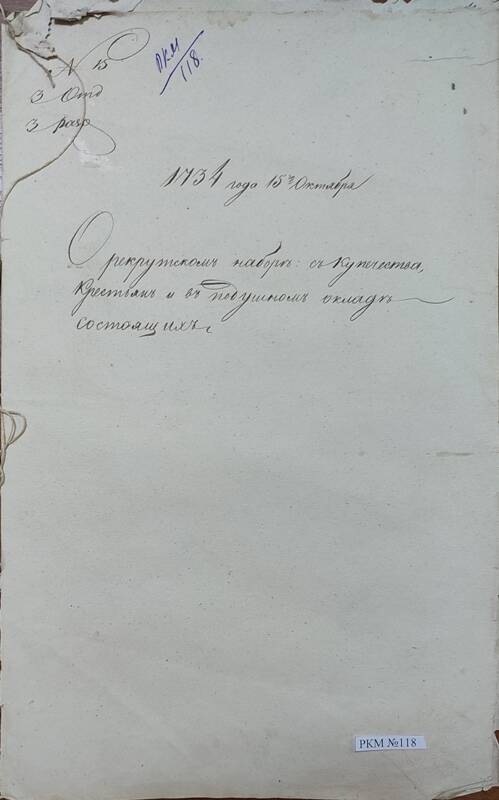 N 15
3 Отд
3 разр
РКМ
118.
1734 года 15го Октября
О рекрутскомъ наборѣ: съ купечества,
Крестьянъ и въ подушномъ окладѣ
состоящихъ.
РКМ №118